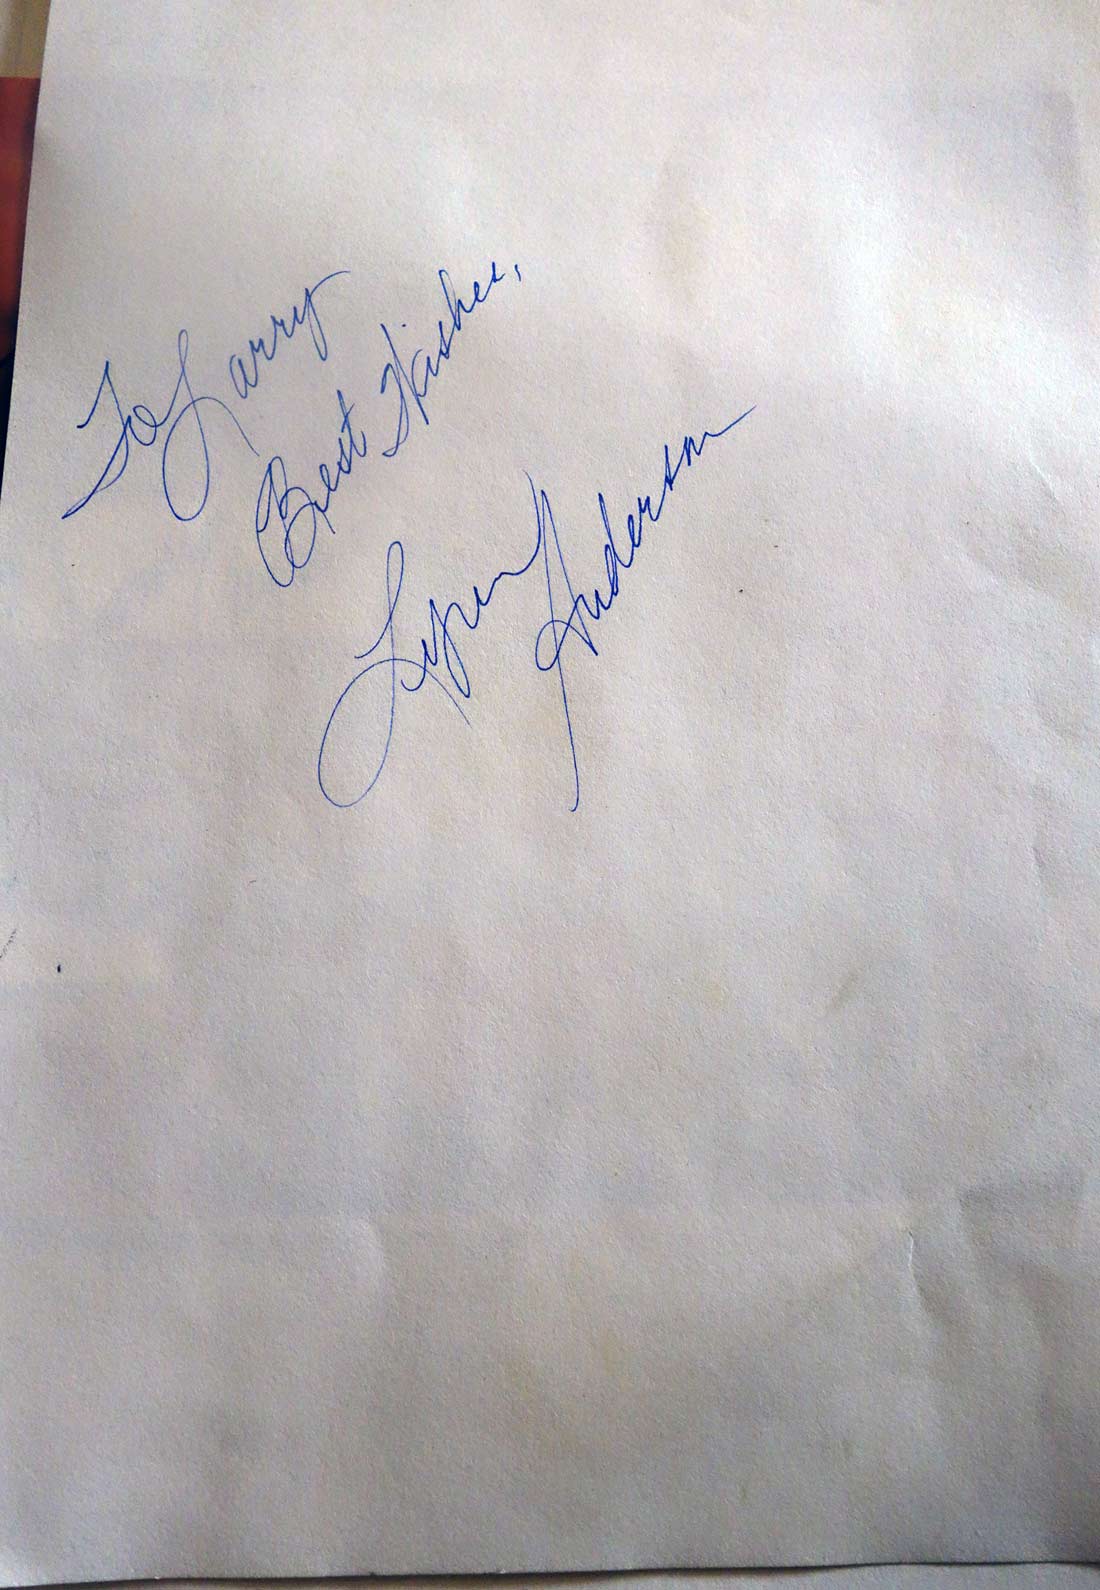 To Larry
Best Wishes,
Lynn Anderson